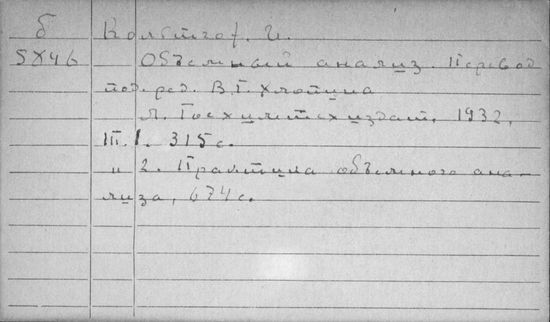 б Кольтгоf. И.
5Х46 Объемный анализ. Перевод
под. ред. В.Г. Хлопина
Л. Госхимтехиздат, 1932,
т. 1. 315с.
" 2. Практика объемного ана-
лиза, 674с.